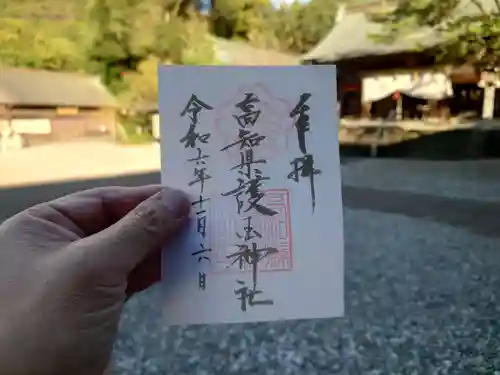 奉拝
高知県護国神社
令和六年十一月六日